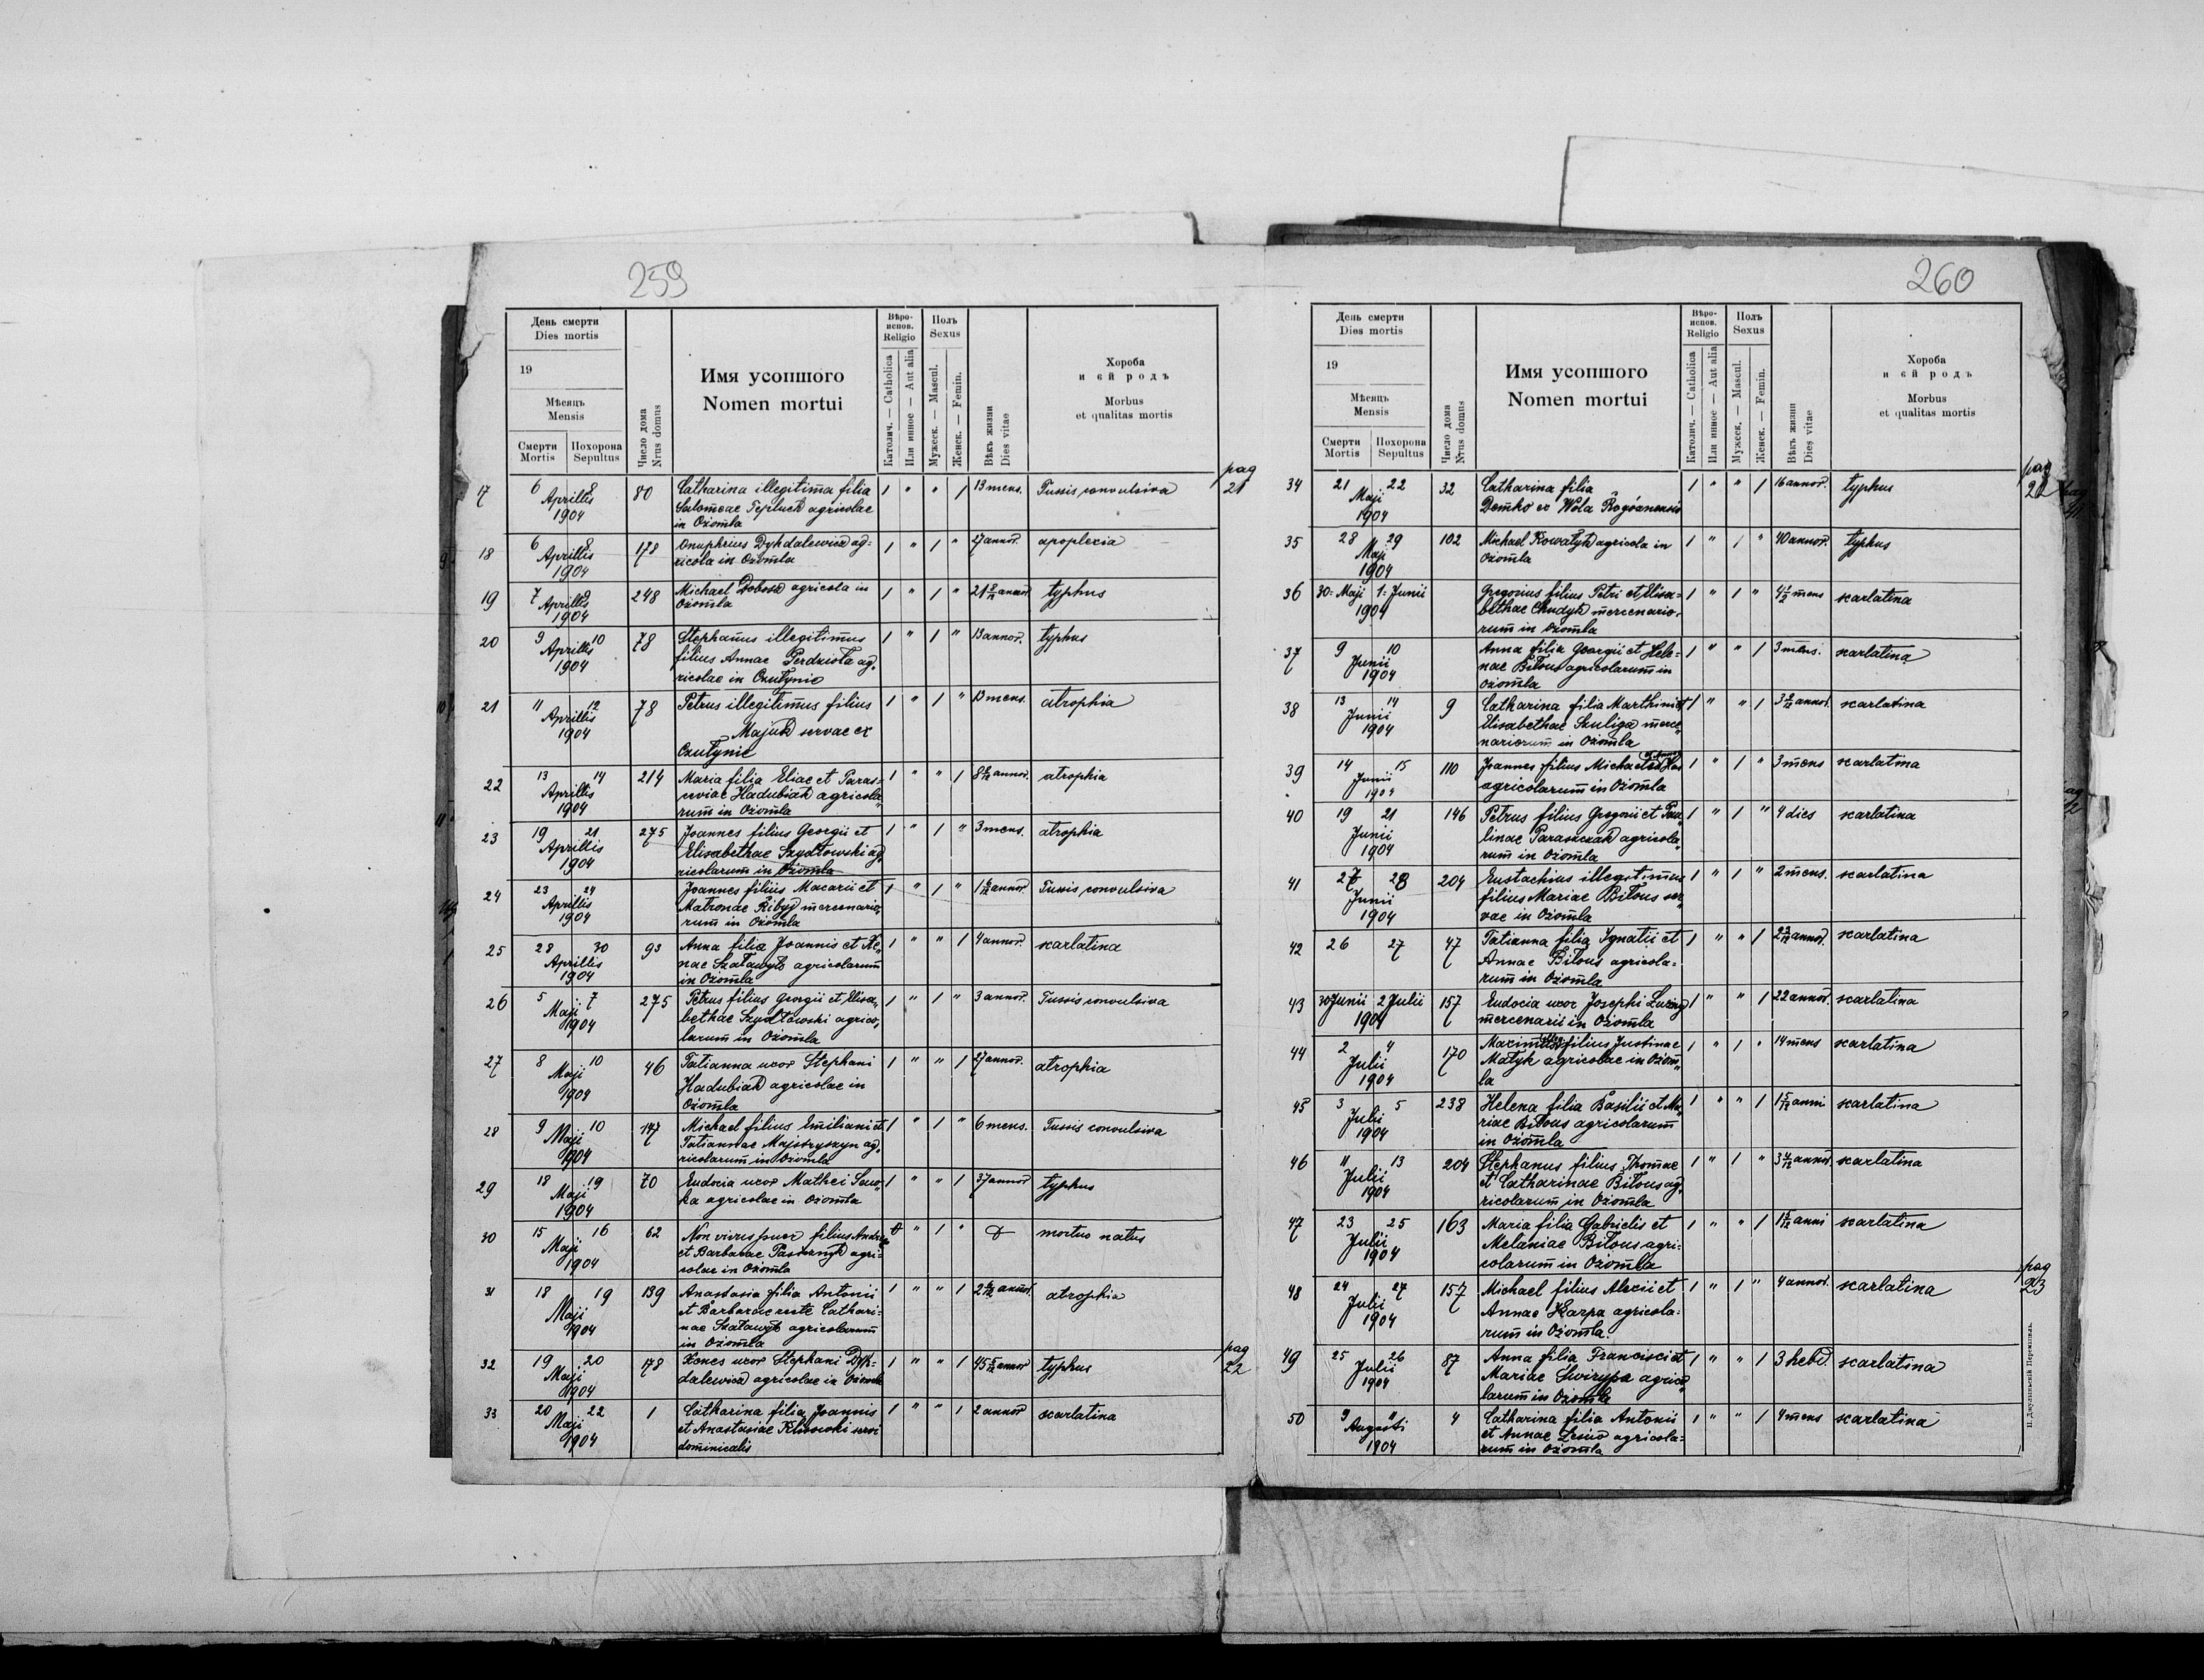 259
День смерти
Dies mortis
19
Мѣсяць
Mensis
Смерти
Mortis
Похорона
Sepultus
Число дома
Nrus domus
Имя усопшого
Nomen mortui
Вѣро-
испов.
Religio
Католич. — Catholica
Или инное — Aut alia
Полъ
Sexus
Мужеск. — Mascul.
Женск. — Femin.
Вѣкъ жизни
Dies vitae
Хороба
и єй родъ
Morbus
et qualitas mortis
pag
21
17 6 8 80 Catharina illegitima filia 1 " " 1 13 mens. Tussis convulsiva
Aprilis Salomeae Tepluch agricolae
1904 in Ożomla
18 6 8 178 Onuphrius Dyhdalewicz ag= 1 " 1 " 27 annor. apoplexia
Aprilis ricola in Ożomla
1904
19 7 9 248 Michael Dobosz agricola in 1 " 1 " 21 annor. typhus
Aprilis Ożomla
1904
20 9 10 78 Stephanus illegitimus 1 " 1 " 13 annor. typhus
Aprilis filius Annae Perdzioła ag=
1904 ricolae in Czułynie
21 11 12 78 Petrus illegitimus filius 1 " 1 " 13 mens. atrophia
Aprilis Majuk servae ex
1904 Czułynie
22 13 14 214 Maria filia Eliae et Paras= 1 " " 1 annor. atrophia
Aprilis ceviae Hadubiak agricola=
1904 rum in Ożomla
23 19 21 275 Joannes filius Georgii et 1 " 1 " 3 mens. atrophia
Aprilis Elisabethae Szydłowski ag
1904 ricolarum in Ożomla
24 23 24 Joannes filius Macarii et 1 " 1 " annor. Tussis convulsiva
Aprilis Matronae Ribyj mercenario=
1904 rum in Ożomla
25 28 30 93 Anna filia Joannis et Xe= 1 " " 1 4 annor. scarlatina
Aprilis niae Szaławyło agricolarum
1904 in Ożomla
26 5 7 275 Petrus filius Georgii et Elisa= 1 " 1 " 3 annor. Tussis convulsiva
Maji bethae Szydłowski agrico=
1904 larum in Ożomla
27 8 10 46 Tatianna uxor Stephani 1 " " 1 27 annor. atrophia
Maji Hadubiak agricolae in
1904 Ożomla
28 9 10 147 Michael filius Emiliani et 1 " 1 " 6 mens. Tussis convulsiva
Maji Tatiannae Majstryszyn ag=
1904 ricolarum in Ożomla
29 18 19 70 Eudocia uxor Mathei 1 " " 1 37 annor typhus
Maji agricolae in Ożomla
1904
30 15 16 62 Non vivus puer filius Andreae " 1 " mortuo natus
Maji et Barbarae agri=
1904 colae in Ożomla
31 18 19 139 Anastasia filia Antonii 1 " " 1 annor. atrophia
Maji et Barbarae recte Cathari=
1904 nae Szaławyło agricolarum
in Ożomla
32 19 20 178 Xenes uxor Stephani Dyh= 1 " " 1 annor typhus
Maji dalewicz agricolae in Ożomla
1904
pag
22
33 20 22 1 Catharina filia Joannis 1 " " 1 2 annor scarlatina
Maji et Anastasiae servi
1904 dominicalis
260
День смерти
Dies mortis
19
Мѣсяць
Mensis
Смерти
Mortis
Похорона
Sepultus
Число дома
Nrus domus
Имя усопшого
Nomen mortui
Вѣро-
испов.
Religio
Католич. — Catholica
Или инное — Aut alia
Полъ
Sexus
Мужеск. — Mascul.
Женск. — Femin.
Вѣкъ жизни
Dies vitae
Хороба
и єй родъ
Morbus
et qualitas mortis
pag
22
34 21 22 32 Catharina filia 1 " " 1 16 annor. typhus
Maji Demko ex Wola Rogóznensis
1904
35 28 29 102 Michael Kowałyk agricola in 1 " 1 " 40 annor. typhus
Maji Ożomla
1904
36 30: Maji 1: Junii Gregorius filius Petri et Elisa= 1 " 1 " 4½ mens scarlatina
1904 bethae Chudyk mercenario=
rum in Ożomla
37 9 10 Anna filia Georgii et Hele= 1 " " 1 3 mens. scarlatina
Junii nae Biłous agricolarum in
1904 Ożomla
38 13 14 9 Catharina filia Marthini et 1 " " 1 annor. scarlatina
Junii Elisabethae Szuliga merce=
1904 nariorum in Ożomla
39 14 15 110 Joannes filius 1 " 1 " 3 mens scarlatina
Junii agricolarum in Ożomla
1904
40 19 21 146 Petrus filius Gregorii et Pau= 1 " 1 " 4 dies scarlatina
Junii linae Paraszczak agricola=
1904 rum in Ożomla
41 28 204 Eustachius illegitimus 1 " 1 " 2 mens. scarlatina
Junii filius Mariae Biłous ser=
1904 vae in Ożomla
42 26 27 47 Tatianna filia Ignatii et 1 " " 1 annor. scarlatina
Annae Biłous agricola=
rum in Ożomla
43 30 Junii 2 Julii 157 Eudocia uxor Josephi 1 " " 1 22 annor. scarlatina
1904 mercenarii in Ożomla
44 2 4 170 filius Justinae 1 " 1 " 14 mens scarlatina
Julii Matyk agricolae in Ożom=
1904 la
45 3 5 238 Helena filia Basilii et Ma= 1 " " 1 anni scarlatina
Julii riae Biłous agricolarum
1904 in Ożomla
46 11 13 204 Stephanus filius Thomae 1 " 1 " annor scarlatina
Julii et Catharinae Biłous ag=
1904 ricolarum in Ożomla
47 23 25 163 Maria filia Gabrielis et 1 " " 1 anni scarlatina
Julii Melaniae Biłous agri=
1904 colarum in Ożomla
pag
23
48 24 27 157 Michael filius Alexii et 1 " 1 " 4 annor. scarlatina
Julii Annae Karpa agricola=
1904 rum in Ożomla.
49 25 26 87 Anna filia Francisci et 1 " " 1 3 hebd scarlatina
Julii Mariae Swirypa agrico=
1904 larum in Ożomla
50 9 11 4 Catharina filia Antonii 1 " " 1 4 mens scarlatina
Augusti et Annae Lesiw agricola=
1904 rum in Ożomla